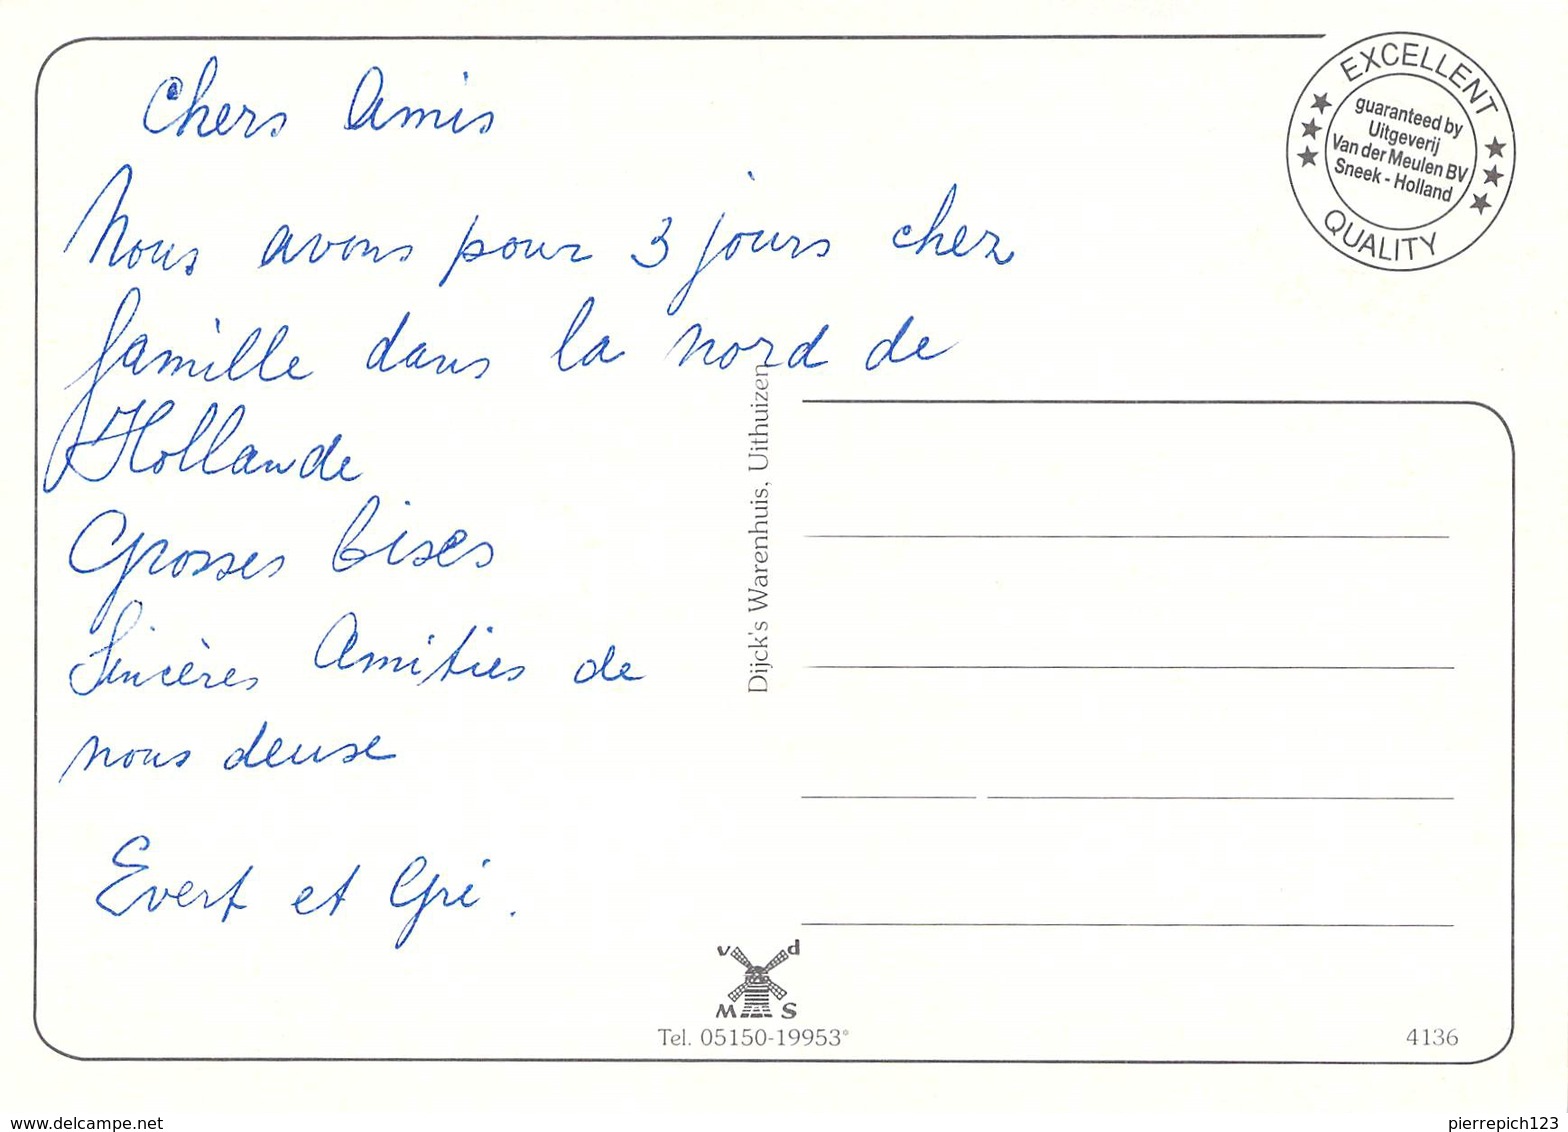 Chers Amis
Nous avons pour 3 jours chez
famille dans la nord de
Hollande
Grosses bises
Sincères Amitiés de
nous deuse
Evert et Gré.
EXCELLENT
guaranteed by
Uitgeverij
Van der Meulen BV
Sneek - Holland
QUALITY
Dijck's Warenhuis, Uithuizen
v d
M S
Tel. 05150-19953*
4136
pierrepich123